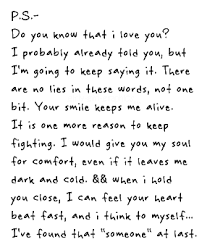 P.S.-
Do you know that i love you?
I probably already told you, but
I'm going to keep saying it. There
are no lies in these words, not one
bit. Your smile keeps me alive.
It is one more reason to keep
fighting. I would give you my soul
for comfort, even if it leaves me
dark and cold. && when i hold
you close, I can feel your heart
beat fast, and i think to myself...
I've found that "someone" at last.